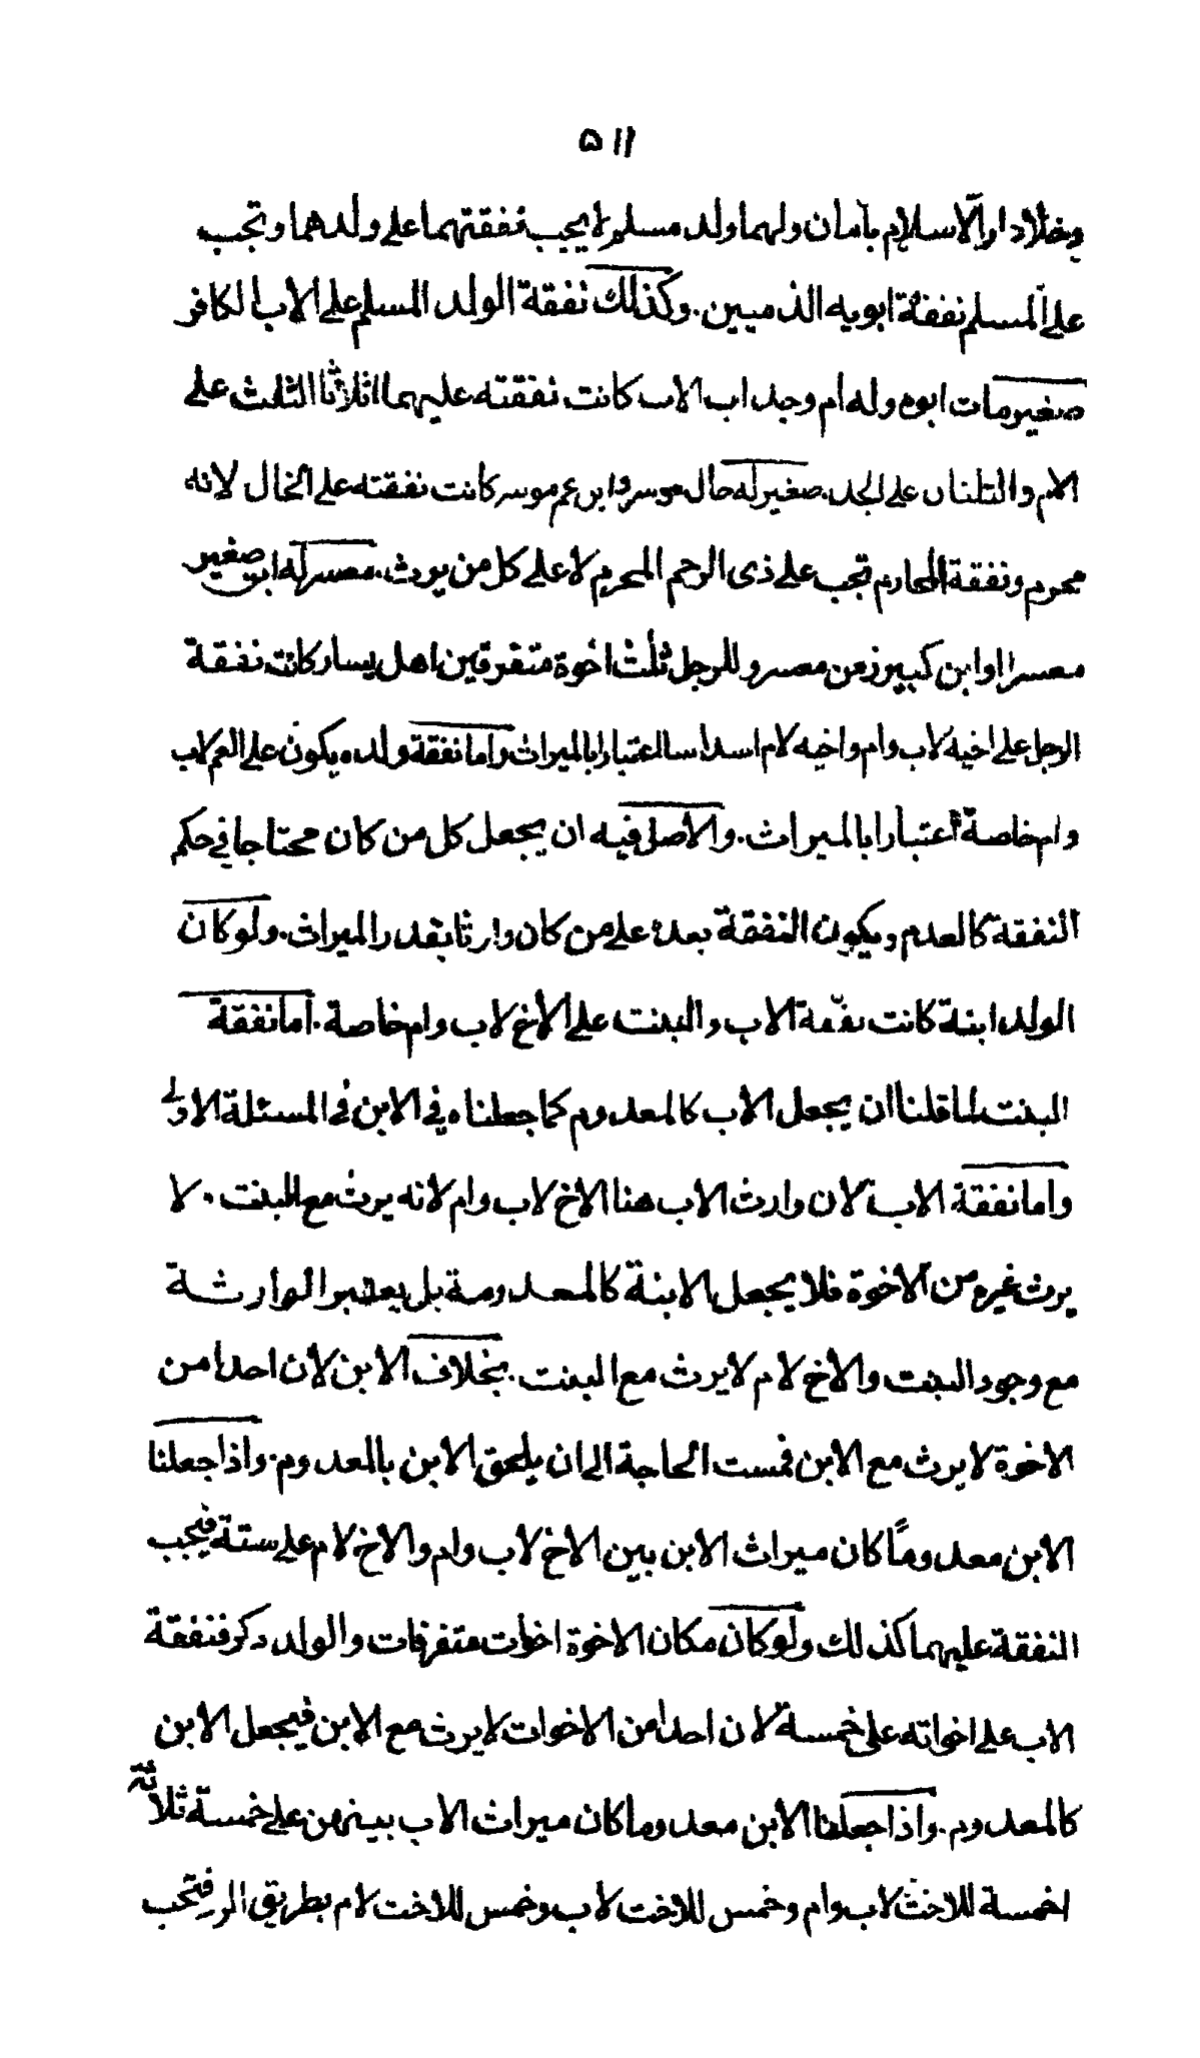 ۵۱۱
دخلا دار الاسلام بامان ولهما ولد مسلم لا يجب نفقتهما على ولدهما وتجب
على المسلم نفقة ابويه الذميين. وكذلك نفقة الولد المسلم على الاب الكافر
صغير مات ابوه وله ام وجد اب الاب كانت نفقته عليهما اثلاثا الثلث على
الام والثلثان على الجد. صغير له خال موسر وابن عم موسر كانت نفقته على الخال لانه
محرم ونفقة المحارم تجب على ذى الرحم المحرم لا على كل من يرث. معسر له ابن صغير
معسرا او ابن كبير زمن معسر وللرجل ثلث اخوة متفرقين اهل يسار كانت نفقة
الرجل على اخيه لاب وام واخيه لام اسداسا اعتبارا بالميراث واما نفقة ولده يكون على العم لاب
وام خاصة اعتبارا بالميراث. والاصل فيه ان يجعل كل من كان محتاجا في حكم
النفقة كالعدم ويكون النفقة بعده على من كان وارثا بقدر الميراث. ولو كان
الولد ابنة كانت نفقة الاب والبنت على الاخ لاب وام خاصة. اما نفقة
البنت لما قلنا ان يجعل الاب كالمعدوم كما جعلناه في الابن في المسئلة الاولى
واما نفقة الاب لان وارث الاب هنا الاخ لاب وام لانه يرث مع البنت. لا
يرث غيره من الاخوة فلا يجعل الابنة كالمعدومة بل يعتبر الوارثة
مع وجود البنت والاخ لام لا يرث مع البنت. بخلاف الابن لان احدا من
الاخوة لا يرث مع الابن فمست الحاجة الى ان يلحق الابن بالمعدوم. واذا جعلنا
الابن معدومًا كان ميراث الابن بين الاخ لاب وام والاخ لام على ستة فيجب
النفقة عليهما كذلك ولو كان مكان الاخوة اخوات متفرقات والولد ذكر فنفقة
الاب على اخواته على خمسة لان احدا من الاخوات لا يرث مع الابن فيجعل الابن
كالمعدوم. واذا جعلنا الابن معدوما كان ميراث الاب بينهن على خمسة ثلاثة
اخمسة للاخت لاب وام وخمس للاخت لاب وخمس للاخت لام بطريق الرد فتجب